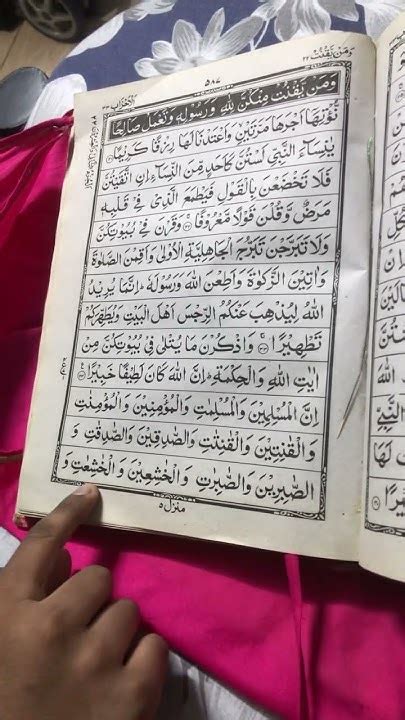 وَمَنْ يَّقْنُتْ ٢٢
٥٨٧
الْاَحْزَاب ٣٣
وَمَنْ يَّقْنُتْ مِنْكُنَّ لِلّٰهِ وَرَسُوْلِهٖ وَتَعْمَلْ صَالِحًا
نُّؤْتِهَآ اَجْرَهَا مَرَّتَيْنِ وَاَعْتَدْنَا لَهَا رِزْقًا كَرِيْمًا
يٰنِسَآءَ النَّبِيِّ لَسْتُنَّ كَاَحَدٍ مِّنَ النِّسَآءِ اِنِ اتَّقَيْتُنَّ
فَلَا تَخْضَعْنَ بِالْقَوْلِ فَيَطْمَعَ الَّذِيْ فِيْ قَلْبِهٖ
مَرَضٌ وَّقُلْنَ قَوْلًا مَّعْرُوْفًا وَقَرْنَ فِيْ بُيُوْتِكُنَّ
وَلَا تَبَرَّجْنَ تَبَرُّجَ الْجَاهِلِيَّةِ الْاُوْلٰى وَاَقِمْنَ الصَّلٰوةَ
وَاٰتِيْنَ الزَّكٰوةَ وَاَطِعْنَ اللّٰهَ وَرَسُوْلَهٗ اِنَّمَا يُرِيْدُ
اللّٰهُ لِيُذْهِبَ عَنْكُمُ الرِّجْسَ اَهْلَ الْبَيْتِ وَيُطَهِّرَكُمْ
تَطْهِيْرًا وَاذْكُرْنَ مَا يُتْلٰى فِيْ بُيُوْتِكُنَّ مِنْ
اٰيٰتِ اللّٰهِ وَالْحِكْمَةِ اِنَّ اللّٰهَ كَانَ لَطِيْفًا خَبِيْرًا
اِنَّ الْمُسْلِمِيْنَ وَالْمُسْلِمٰتِ وَالْمُؤْمِنِيْنَ وَالْمُؤْمِنٰتِ
وَالْقٰنِتِيْنَ وَالْقٰنِتٰتِ وَالصّٰدِقِيْنَ وَالصّٰدِقٰتِ وَ
الصّٰبِرِيْنَ وَالصّٰبِرٰتِ وَالْخٰشِعِيْنَ وَالْخٰشِعٰتِ وَ
منزل ٥